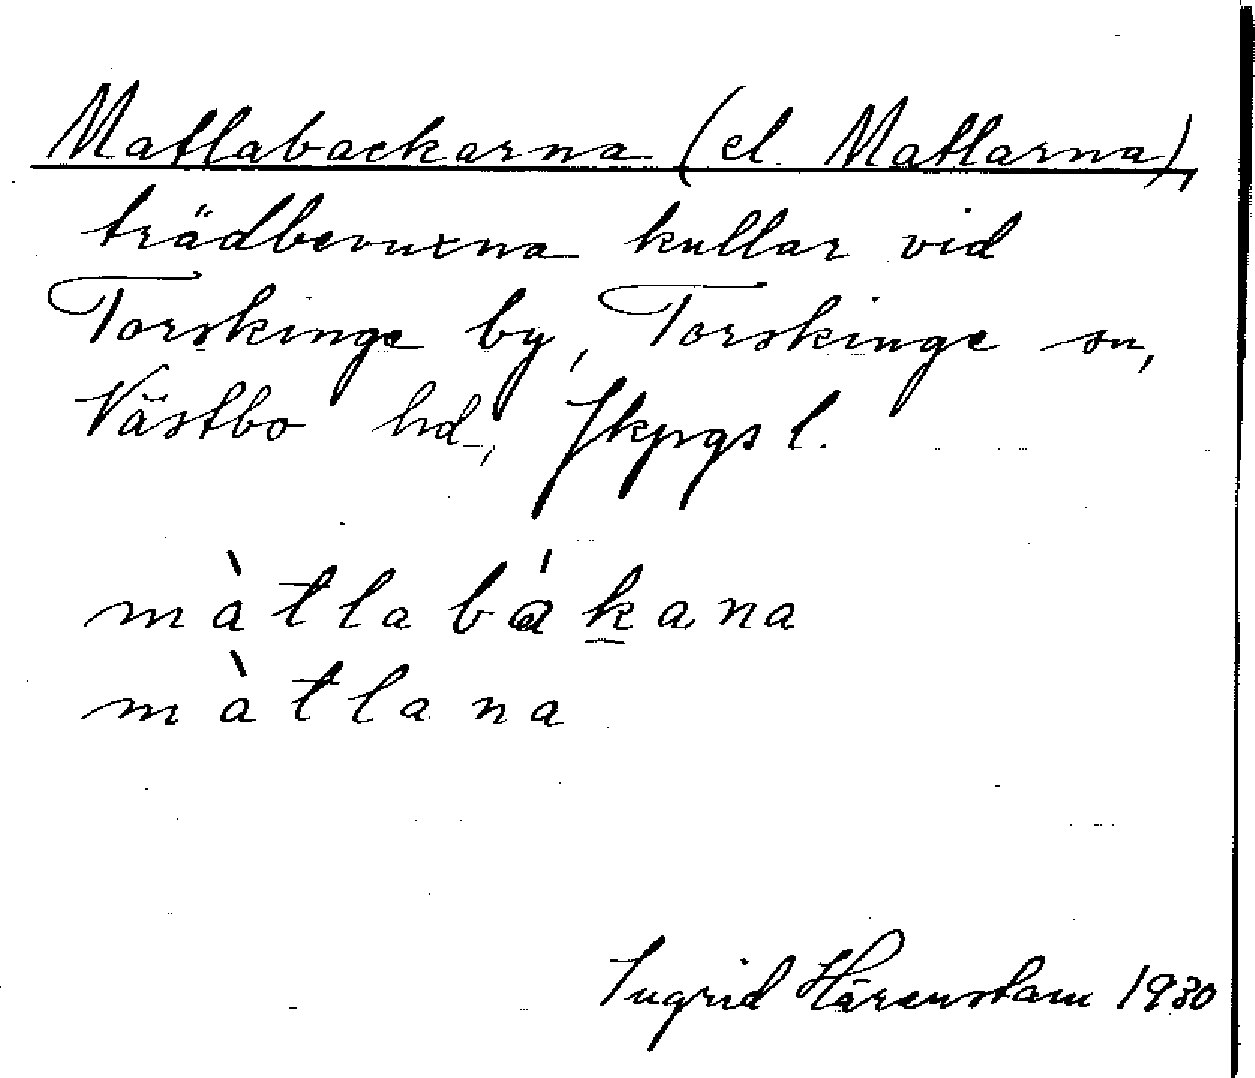 Matlabackarna (el. Matlarna),
trädbevuxna kullar vid
Torskinge by, Torskinge sn,
Västbo hd, Jkpgs l.
màtlabákana
màtlana
Ingrid Härenstam 1930